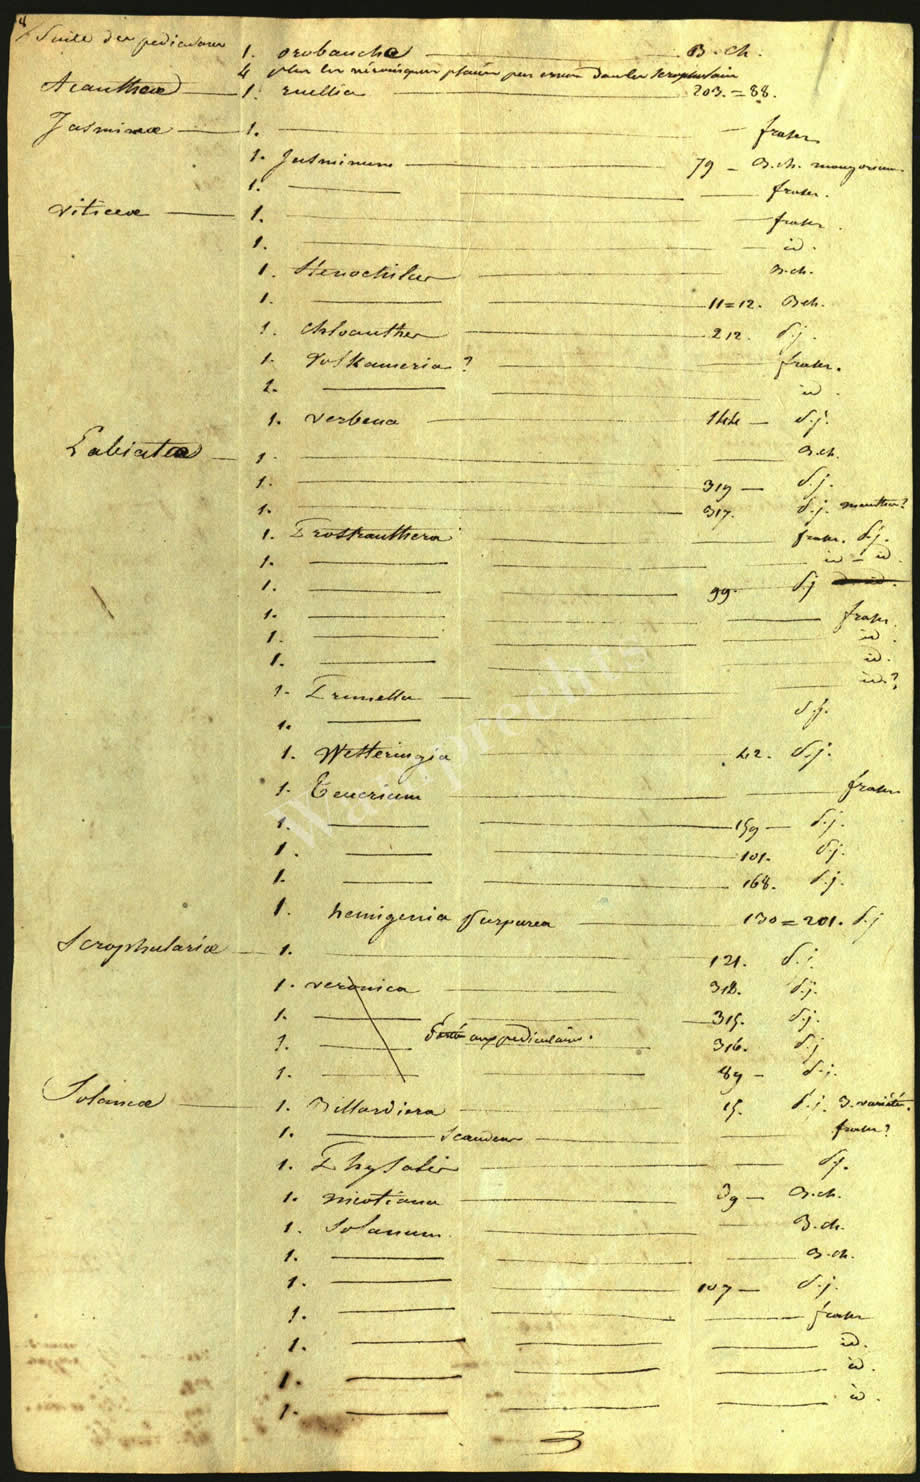 Suite des pediculaires 1. orobanche B. ch.
4 plus les véroniques placées par erreur dans les scrophulaires
Acantheae 1. ruellia 203. = 88.
Jasmineae 1. fraser
1. Jasminum 79 B. ch. mongorium
1. fraser.
Viticeae 1. fraser
1. id.
1. Stenochilus B. ch.
1. 11=12. B ch.
1. chloanthes 212. S. j.
1. Volkameria ? fraser.
1. id.
1. verbena 144 S. j.
Labiatae 1. B. ch.
1. 319 S. j.
1. 317. S. j. mentha?
1. Prostranthera fraser. S. j.
1. id = id
1. 99. S. j
1. fraser
1. id
1. id.
1. Prunella id. ?
1. S. j.
1. Westeringia 42. S. j.
1. Teucrium fraser
1. 159 S. j.
1. 101. S. j.
1. 168. S. j.
1. hemigenia purpurea 130 = 201. S. j
Scrophulariae 1. 121. S. j.
1. veronica 318. S. j.
1. 315. S. j.
1. Porté aux pediculaires. 316. S. j
1. 89 S. j.
Solaneae 1. Billardiera 15. S. j. 3. variétés.
1. Scandens fraser?
1. Physalis S. j.
1. nicotiana 39 B. ch.
1. Solanum B. ch.
1. B. ch.
1. 107 S. j.
1. fraser
1. id.
1. id.
1. id.
Waterprechts